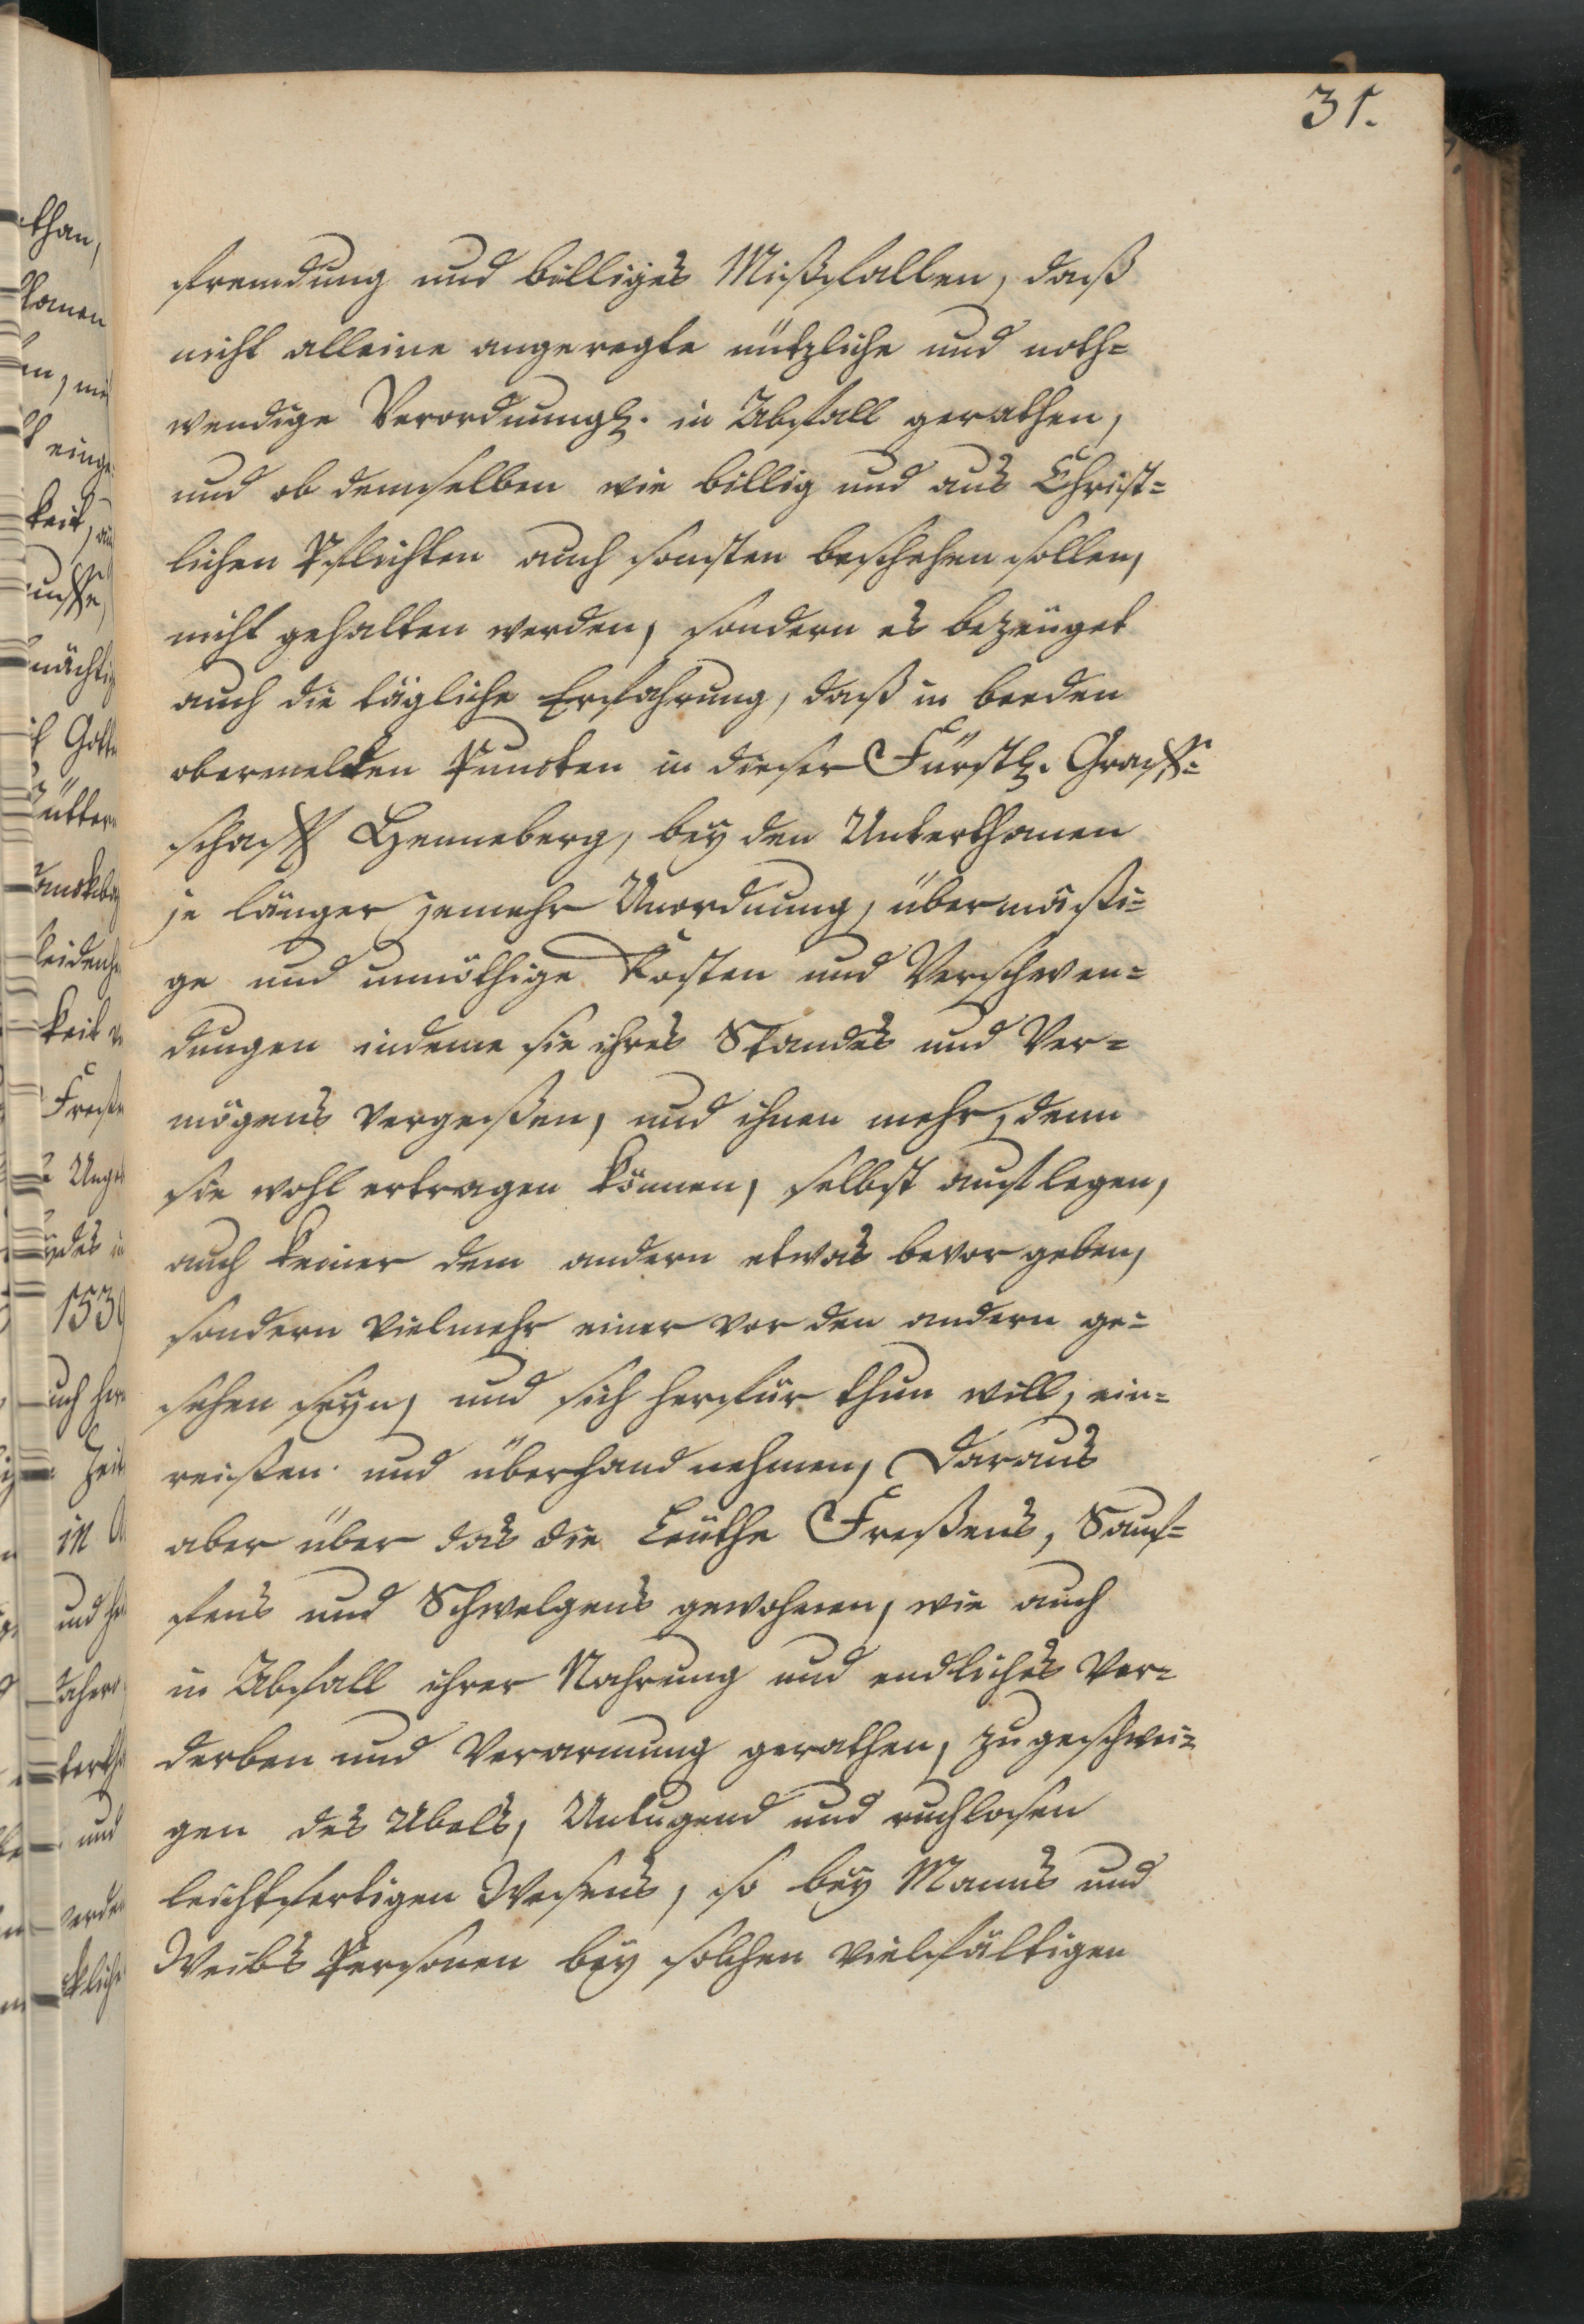 31.
fremdung und billiges Mißfallen, daß
nicht alleine angeregte nützliche und noth=
wendige Verordnung. in Abfall gerathen,
und ob demselben wie billig und aus Christ=
lichen Pflichten auch sonsten beschehen sollen,
nicht gehalten werden, sondern es bezeuget
auch die tägliche Erfahrung, daß in beeden
obermelten Puncten in dieser Fürstl. Graff=
schafft Henneberg, bey den Unterthanen
je länger jemehr Unordnung, übermäßi=
ge und unnöthige Kosten und Verschwen=
dungen indeme sie ihres Standes und Ver=
mögens vergeßen, und ihnen mehr, denn
sie wohl ertragen können, selbst auflegen,
auch keiner dem andern etwas bevor geben,
sondern vielmehr einer vor den andern ge=
sehen seyn, und sich herfür thun will, ein=
reißen und überhand nehmen, Daraus
aber über das die Leuthe Freßens, Sauf=
fens und Schwelgens gewohnen, wie auch
in Abfall ihrer Nahrung und endliches Ver=
derben und Verarmung gerathen, zu geschwei=
gen des Ubels, Untugend und ruchlosen
leichtfertigen Wesens, so bey Manns und
Weibs Personen bey solchen vielfältigen